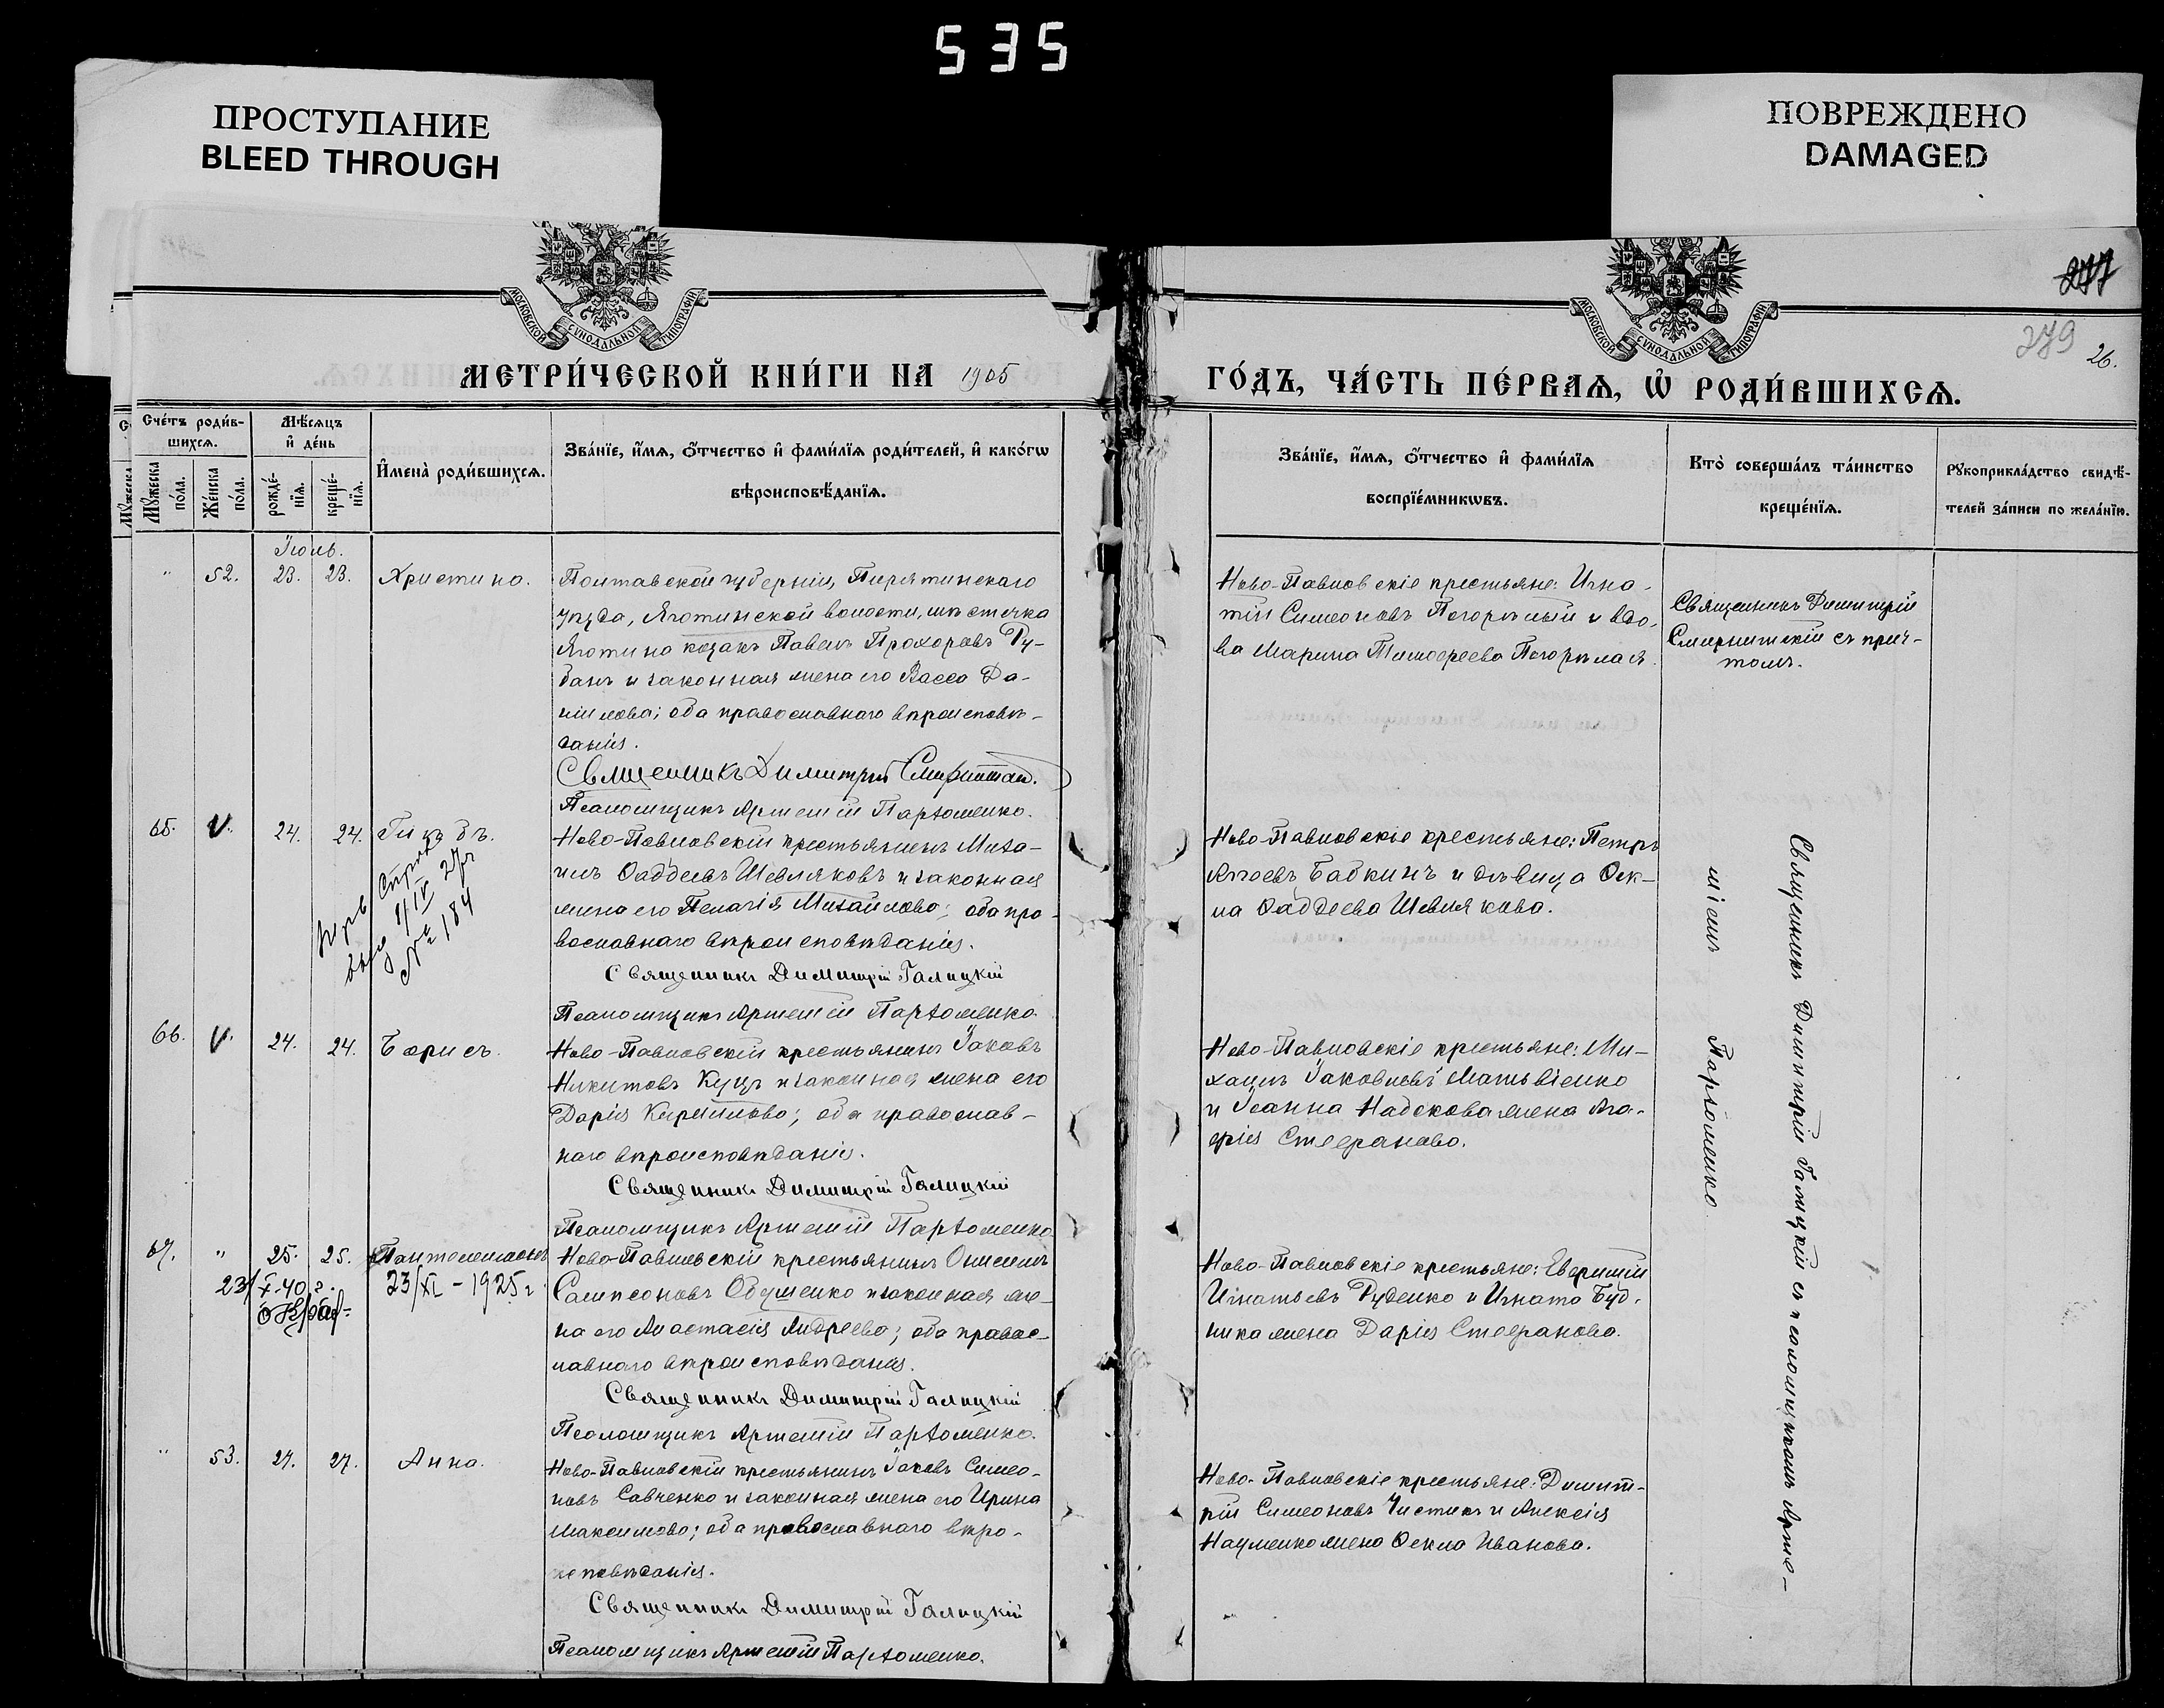 535
ПРОСТУПАНИЕ
BLEED THROUGH
ПОВРЕЖДЕНО
DAMAGED
МОСКОВСКОЙ СѴНОДАЛЬНОЙ ТИПОГРАФІИ
МОСКОВСКОЙ СѴНОДАЛЬНОЙ ТИПОГРАФІИ
277
279
26.
МЕТРИ́ЧЕСКОЙ КНИ́ГИ НА 1905
ГО́ДЪ, ЧА́СТЬ ПЕ́РВАѦ, Ѡ҆ РОДИ́ВШИХСѦ.
Сче́тъ роди́в-
шихсѧ.
Мꙋ́жеска по́ла.
Же́нска по́ла.
Мѣ́сѧцъ
и҆ де́нь
рожде́-
нїѧ.
креще́-
нїѧ.
И҆мена̀ роди́вшихсѧ.
Зва́нїе, и҆́мѧ, ѻ҆́тчество и҆ фами́лїѧ роди́телей, и҆ како́гѡ
вѣроисповѣ́данїѧ.
Зва́нїе, и҆́мѧ, ѻ҆́тчество и҆ фами́лїѧ
воспрїе́мникѡвъ.
Кто̀ соверша́лъ та́инство
креще́нїѧ.
Рꙋкоприкла́дство свидѣ́-
телей за́писи по жела́нїю.
Іюль.
" 52. 23. 23. Христина.
Полтавской губерніи, Пирятинскаго
уѣзда, Яготинской волости, мѣстечка
Яготина козакъ Павелъ Прохоровъ Ру-
банъ и законная жена его Васса Да-
ніилова; оба православного вѣроисповѣ-
данія.
Священникъ Димитрій
Псаломщикъ Артемій Пархоменко.
Ново-Павловскіе крестьяне: Игна-
тій Симеоновъ Погорѣлый и вдо-
ва Марина Тимоѳеева Погорѣлая.
Священникъ Димитрій
съ прич-
томъ.
65. V. 24. 24. Глѣбъ.
№ 184
Ново-Павловскій крестьянинъ Миха-
илъ Ѳаддеевъ Шевляковъ и законная
жена его Пелагія Михайлова; оба пра-
вославного вѣроисповѣданія.
Священникъ Димитрій Галицкій
Псаломщикъ Артемій Пархоменко
Ново-Павловскіе крестьяне: Петръ
Бабкинъ и дѣвица Ѳек-
ла Ѳаддеева Шевлякова.
66. V. 24. 24. Борисъ.
Ново-Павловскій крестьянинъ Іаковъ
Никитовъ Куцъ и законная жена его
Дарія Кириллова; оба православ-
наго вѣроисповѣданія.
Священникъ Димитрій Галицкій
Псаломщикъ Артемій Пархоменко
Ново-Павловскіе крестьяне: Ми-
хаилъ Іаковлевъ Матвіенко
и Іоанна жена Ма-
рія Стефанова.
67. " 25. 25. Пантелеимонъ
23/X-40 г.
23/XI - 1925 г.
Ново-Павловскій крестьянинъ Онисимъ
Сампсоновъ и законная же-
на его Анастасія Андреева; оба правос-
лавного вѣроисповѣданія.
Священникъ Димитрій Галицкій
Псаломщикъ Артемій Пархоменко.
Ново-Павловскіе крестьяне: Евфимій
Игнатьевъ Руденко и Игната Буд-
ника жена Дарія Стефанова.
" 53. 27. 27. Анна.
Ново-Павловскій крестьянинъ Іаковъ Симео-
новъ Савченко и законная жена его Ирина
Максимова; оба православнаго вѣро-
исповѣданія.
Священникъ Димитрій Галицкій
Псаломщикъ Артемій Пархоменко.
Ново-Павловскіе крестьяне: Димит-
рій Симеоновъ Чистикъ и Алексія
Науменко жена Ѳекла Иванова.
Священникъ Димитрій Галицкій съ псаломщикомъ Арте-
міемъ Пархоменко.